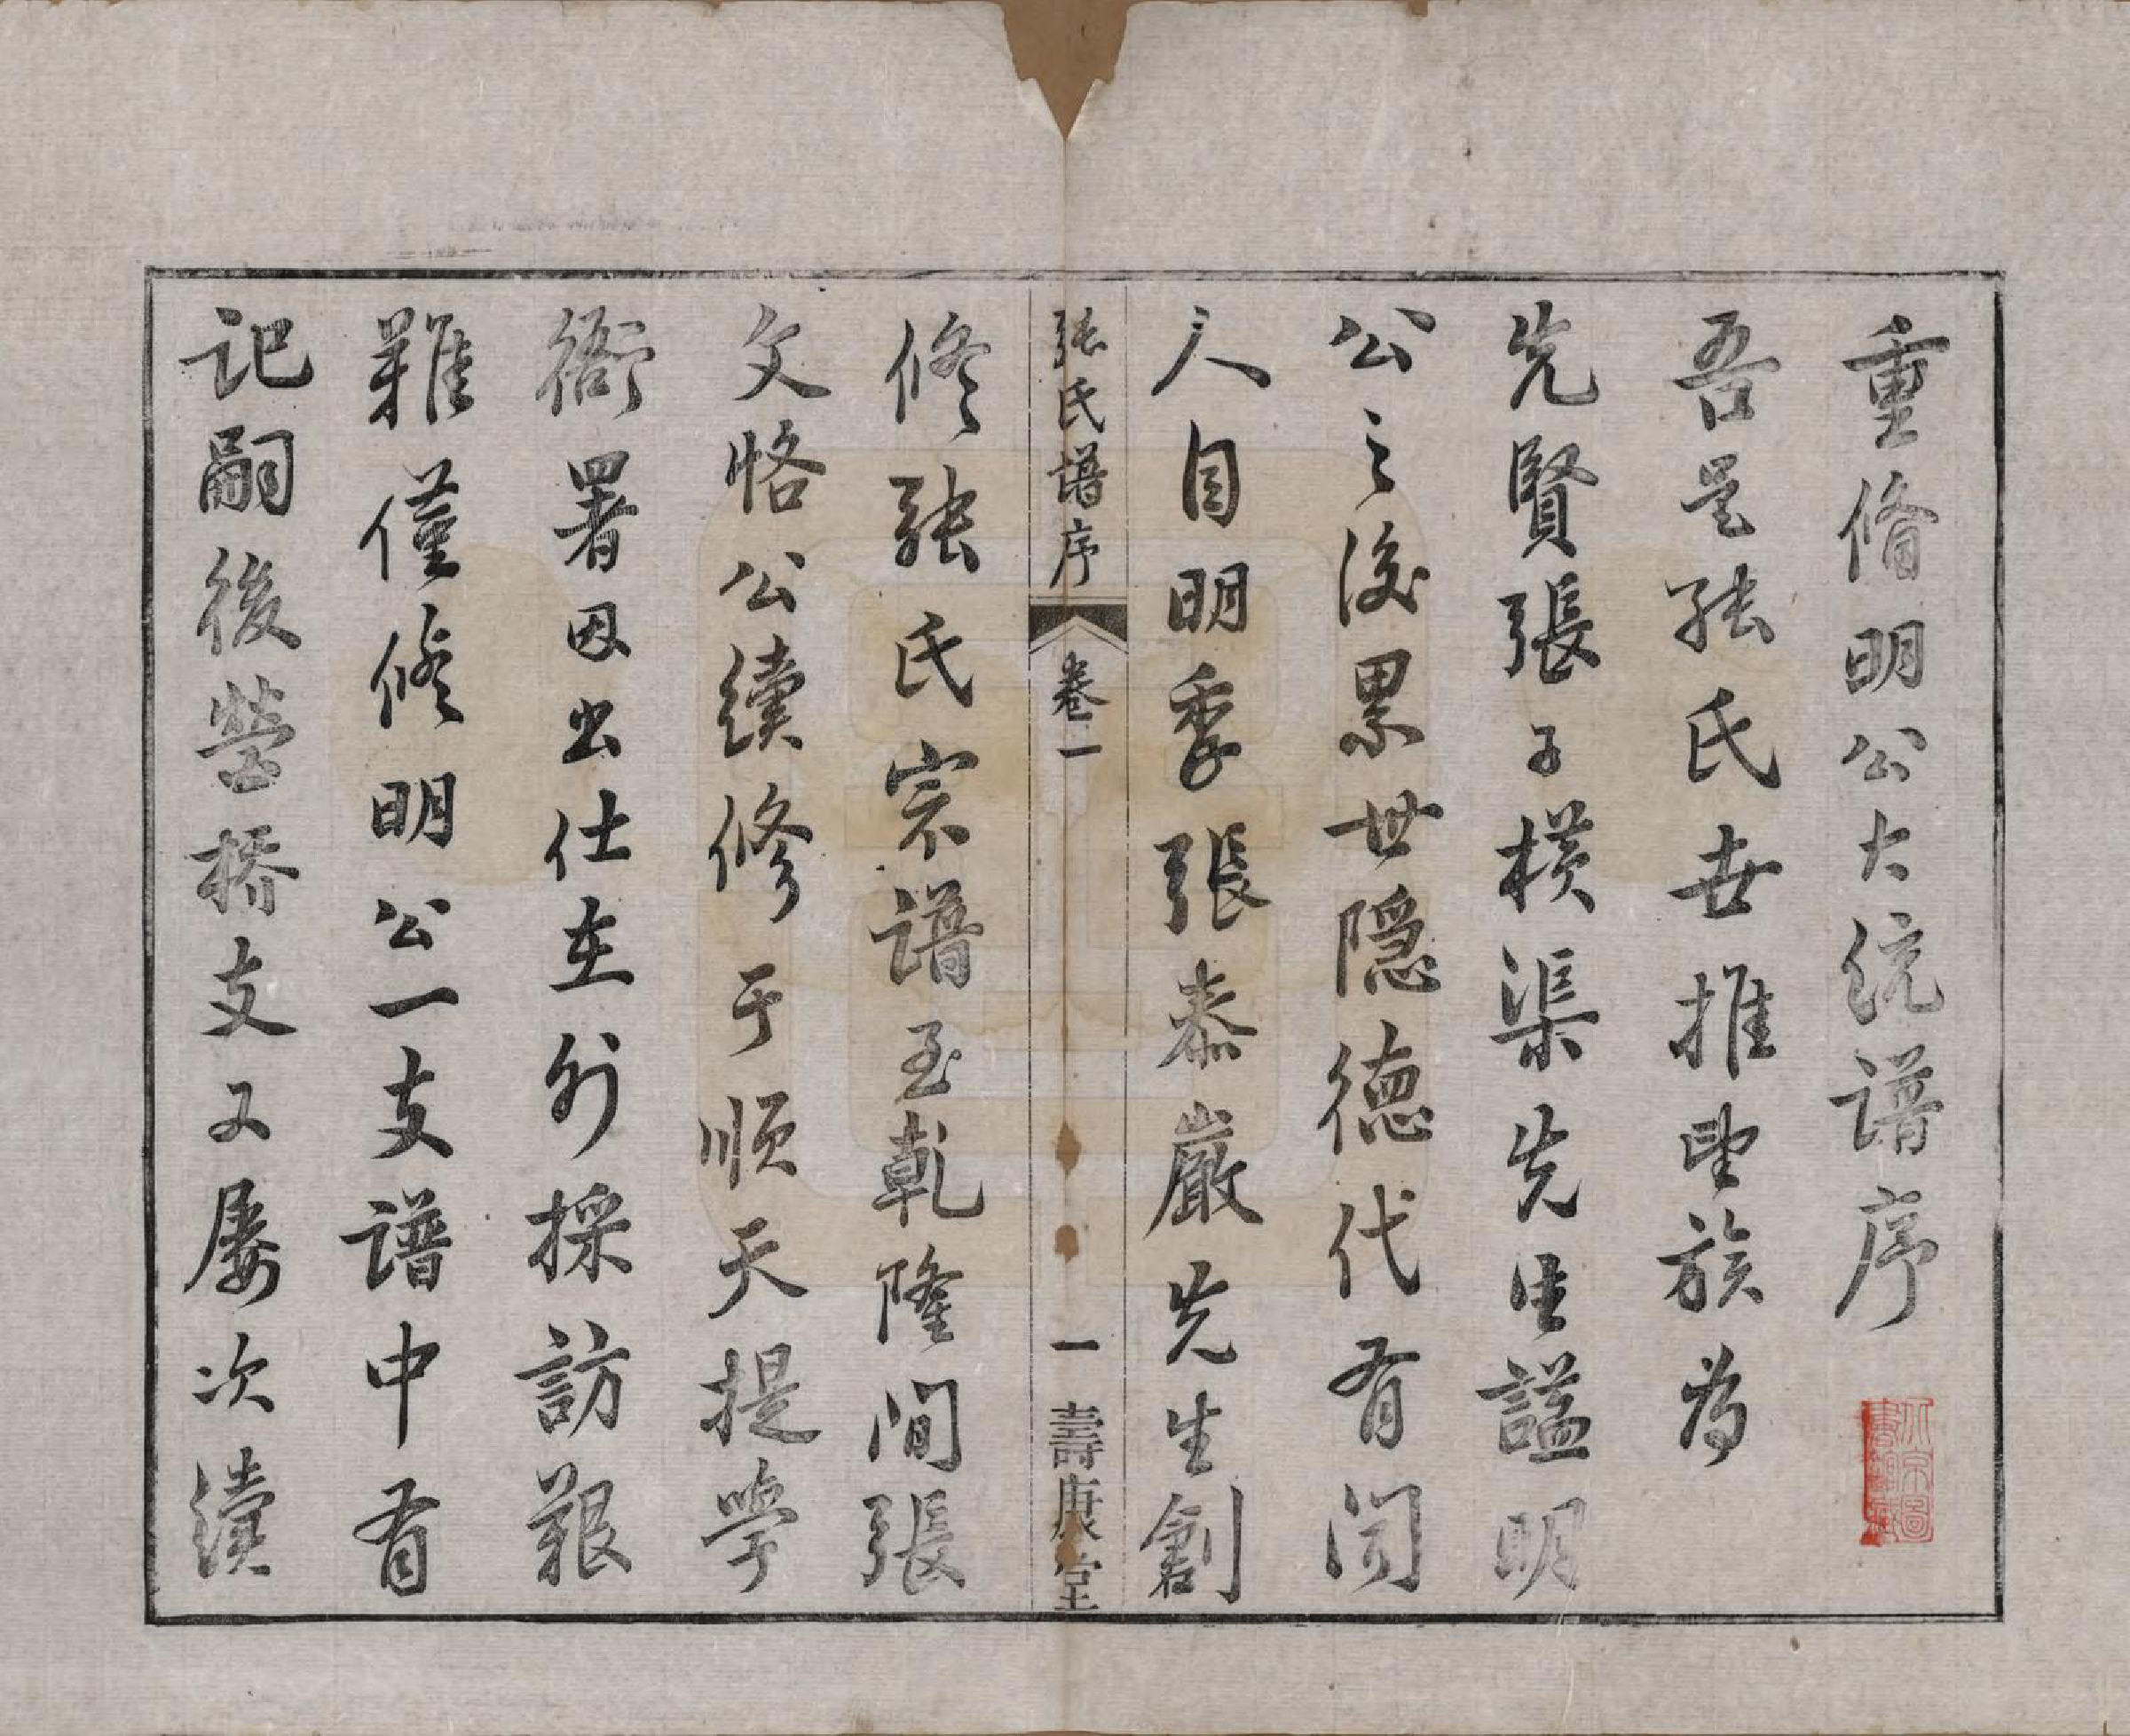 重脩明公大统譜序
吾邑張氏世推望族为
先賢張子横渠先生謚明
公之後累世隱德代有闻
人自明季張泰巖先生創
张氏譜序 卷一 一 壽康堂
修張氏宗譜至乾隆间張
文恪公續修于順天提學
衙署因出仕在外採訪艱
難僅修明公一支譜中有
記嗣後营橋支又屡次續